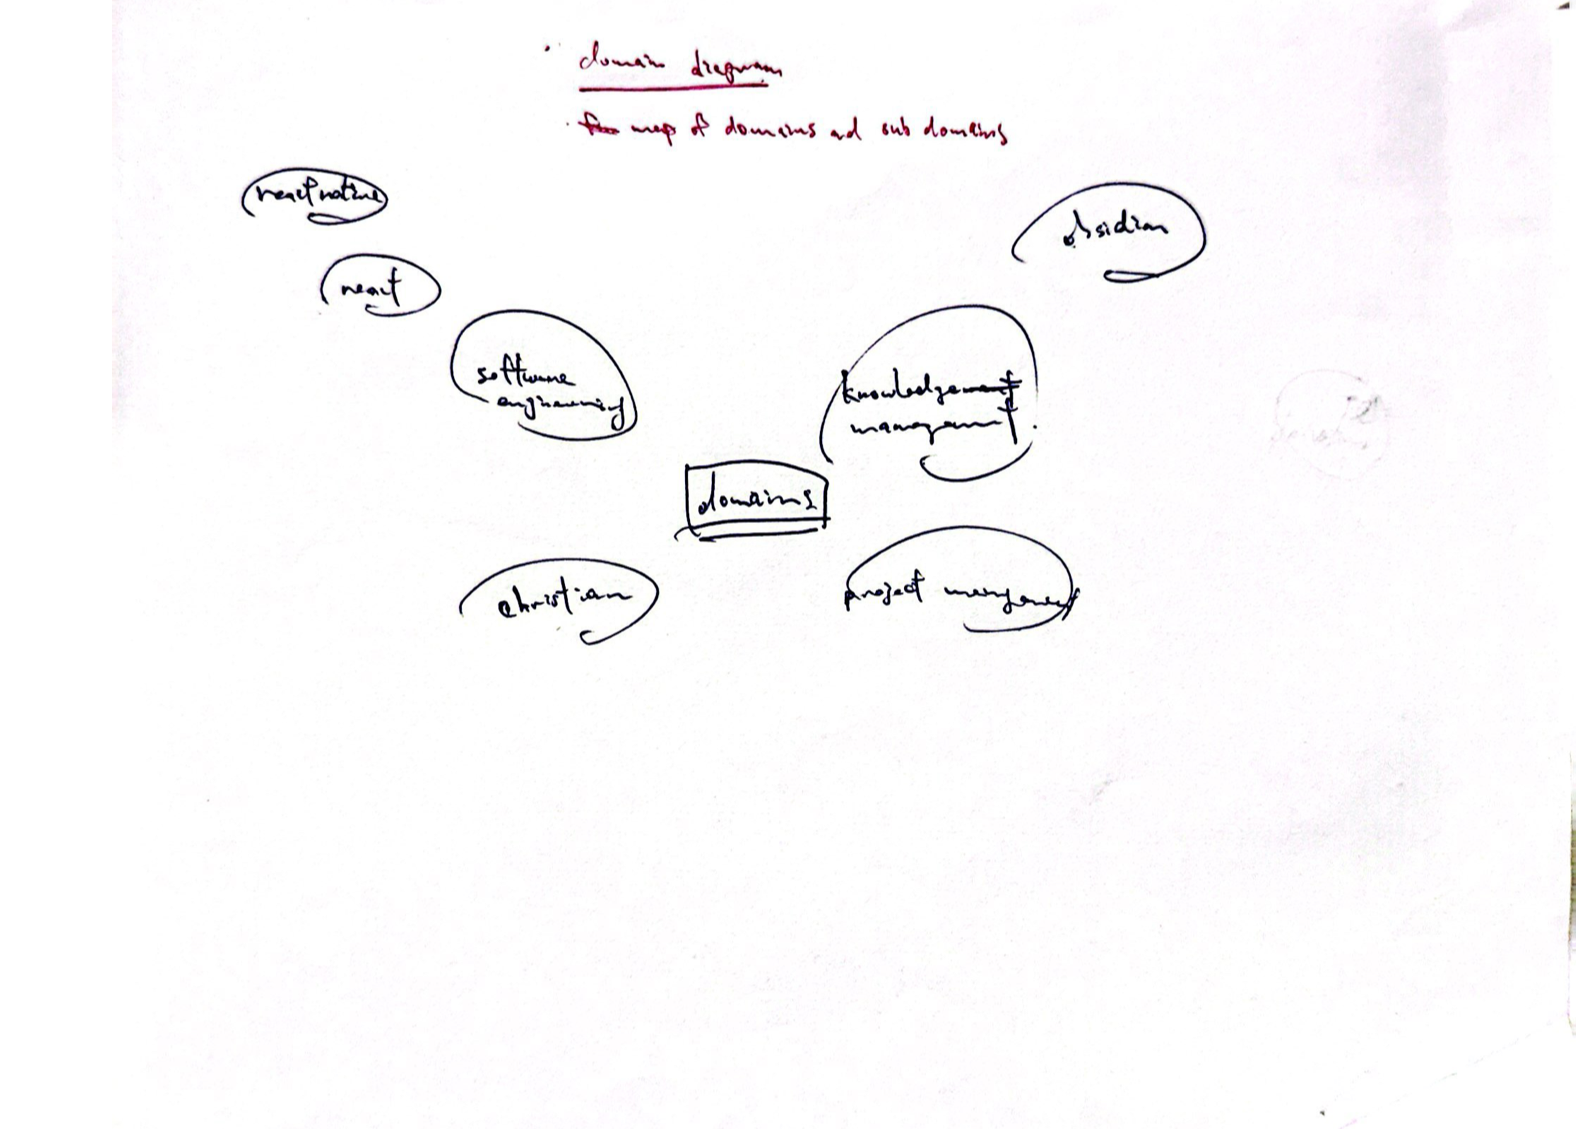 domain diagram
map of domains and sub domains
react native
obsidian
react
software
engineering
knowledge
management
domains
christian
project management